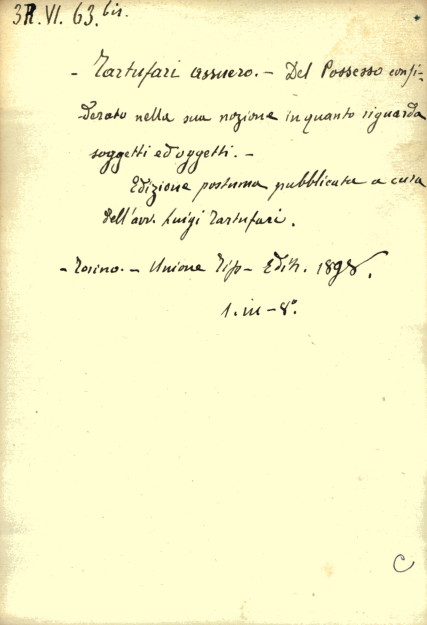 3R.VI. 63.bis.
- Tartufari Assuero. - Del Possesso consi-
derato nella sua nozione in quanto riguarda
soggetti ed oggetti. -
Edizione postuma pubblicata a cura
dell'avv. Luigi Tartufari.
- Torino. - Unione Tip- Edit. 1898.
1. in - 8°.
C